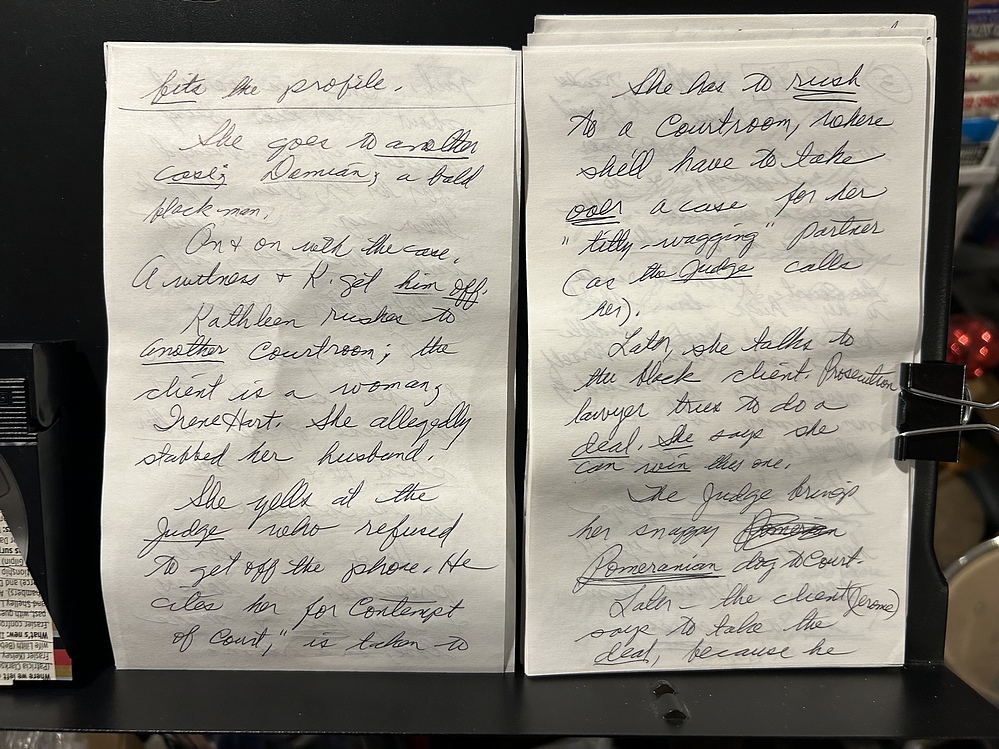 fits the profile.
She goes to another
case; Demian; a bald
black man.
On & on with the case.
A witness & K. get him off.
Kathleen rushes to
another Courtroom; the
client is a woman;
Irene Hart. She allegedly
stabbed her husband.
She yells at the
Judge who refused
to get off the phone. He
cites her for Contempt
of Court," is taken to
She has to rush
to a Courtroom, where
she'll have to take
over a case for her
"titty-wagging" partner
(as the Judge calls
her).
Later, she talks to
the black client. Prosecution
lawyer tries to do a
deal. She says she
can win this one.
The Judge brings
her snappy
Pomeranian dog to Court.
Later - the client (Jerome)
says to take the
deal, because he
What's new:
Frasier (Kelsey
wife Lilith (Beb
(Patricia Clarks
Where we left o